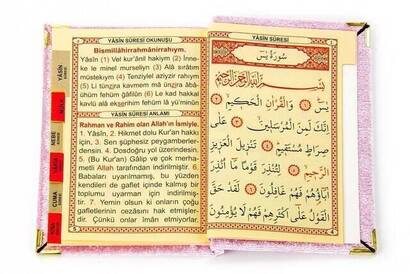 YÂSİN SÛRESİ OKUNUŞU
Bismillâhirrahmânirrahıym.
Yâsîn (1) Vel kur'ânil hakiym (2) İnne-
ke le minel murseliyn (3) Alâ sırâtım
müstekıym (4) Tenziylel aziyzir rahıym
(5) Li tünzira kavmem mâ ünzira âbâ-
ühüm fehüm ğâfilûn (6) Le kad hakkal
kavlü alâ ekserihim fehüm lâ yü'minûn
YÂSİN SÛRESİ ANLAMI
Rahman ve Rahim olan Allah'ın İsmiyle.
1. Yâsîn, 2. Hikmet dolu Kur'an hakkı
için, 3. Sen şüphesiz peygamberler-
densin. 4. Dosdoğru yol üzerindesin.
5. (Bu Kur'an) Gâlip ve çok merha-
metli Allah tarafından indirilmiştir. 6.
Babaları uyarılmamış, bu yüzden
kendileri de gaflet içinde kalmış bir
toplumu uyarman için indirilmiş-
tir. 7. Yemin olsun ki onların çoğu
gafletlerinin cezasını hak etmişler-
dir. Çünkü onlar îman etmiyorlar.
YÂSİN
CUMA
YÂSİN SÛRESİ
سُورَةُ يٰسٓ
بِسْمِ اللّٰهِ الرَّحْمٰنِ الرَّحِيمِ
يٰسٓ ﴿١﴾ وَالْقُرْاٰنِ الْحَكِيمِ ﴿٢﴾
اِنَّكَ لَمِنَ الْمُرْسَلِينَ ﴿٣﴾ عَلٰى
صِرَاطٍ مُسْتَقِيمٍ ﴿٤﴾ تَنْزِيلَ الْعَزِيزِ
الرَّحِيمِ ﴿٥﴾ لِتُنْذِرَ قَوْمًا مَٓا اُنْذِرَ
اٰبَٓاؤُهُمْ فَهُمْ غَافِلُونَ ﴿٦﴾ لَقَدْ حَقَّ
الْقَوْلُ عَلٰٓى اَكْثَرِهِمْ فَهُمْ لَا يُؤْمِنُونَ